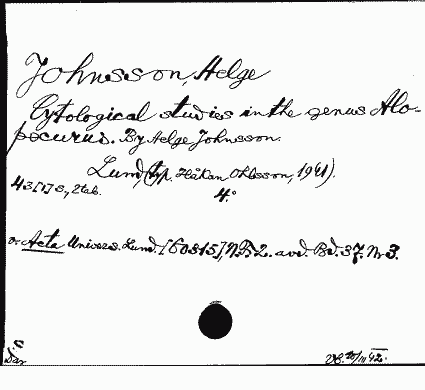 Johnsson, Helge
Cytological studies in the genus Alo-
pecurus. By Helge Johnsson.
Lund, (typ. Håkan Ohlsson, 1941).
43[1]s., 2 tab. 4:o
= Acta Univers. Lund. [60815], N.F. 2. avd. Bd. 37. Nr 3.